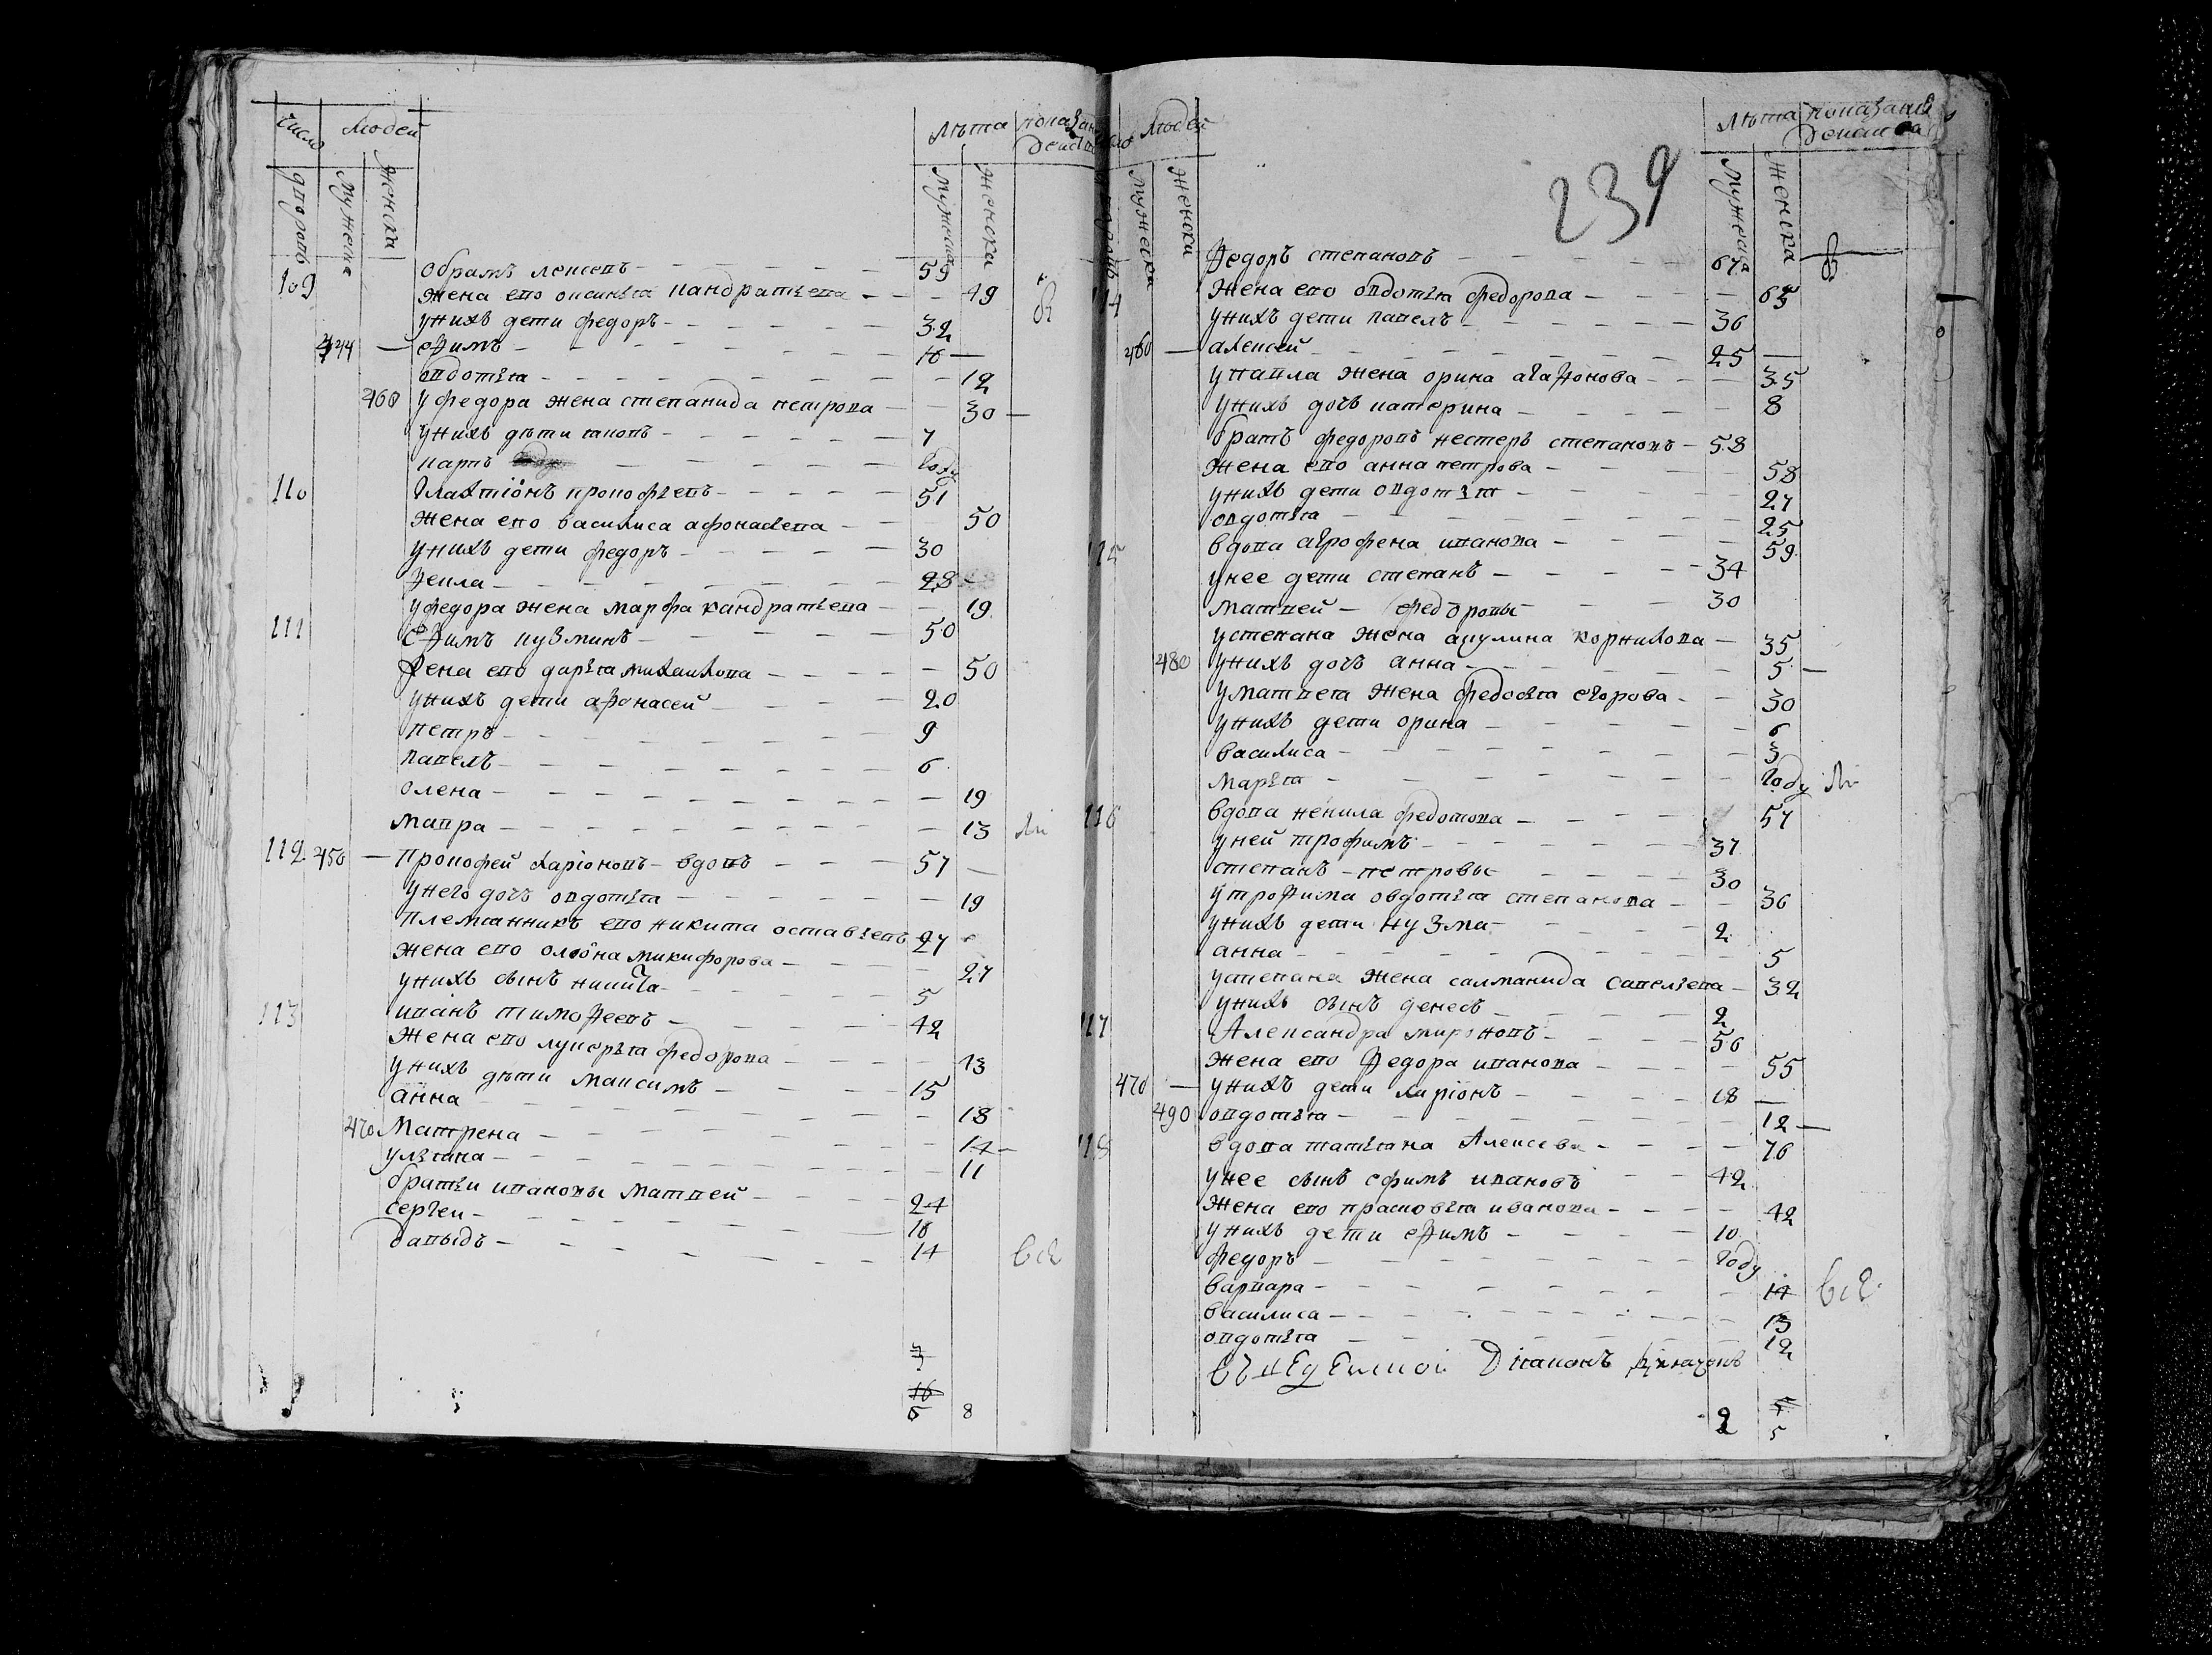 число людей лѣта показан
дворовъ мужеска женски мужеска женска
109 обрамъ леисевъ 59
жена ево оксинья кандратьева 49
у нихъ дети федоръ 32
444 ефимъ 16
овдотья 12
460 у федора жена степанида петрова 30
у нихъ дѣти яковъ 7
карпъ году
110 галахтіонъ прокофьевъ 51
жена ево василиса афонасева 50
у нихъ дети федоръ 30
фекла 28
у федора жена марфа кандратьева 19
111 ефимъ кузминъ 50
жена ево дарья михаилова 50
у нихъ дети афонасей 20
петръ 9
павелъ 6
олена 19
мавра 13
112 450 прокофей ларіоновъ вдовъ 57
у него дочь овдотья 19
племянникъ ево никита оставьевъ 27
жена ево олиона микифорова 27
у нихъ сынъ никита 5
113 иванъ тимофеевъ 42
жена ево лукерья федорова 43
у нихъ дѣти максимъ 15
анна 18
470 матрена 14
ульяна 11
братьи ивановы матвей 24
сергеи 18
давыдъ 14
все
6 8
людей лѣта показания
мужеска женски мужеска женска
239
114 федоръ степановъ 67
жена ево овдотья федорова 65
у нихъ дети павелъ 36
460 алексей 25
у павла жена орина агафонова 35
у нихъ дочь катерина 8
братъ федоровъ нестеръ степановъ 58
жена ево анна петрова 58
у нихъ дети овдотья 27
овдотья 25
115 вдова агрофена иванова 59
у нее дети степанъ 34
матвей федоровы 30
у степана жена акулина корнилова 35
480 у нихъ дочь анна 5
у матвея жена федосья егорова 30
у нихъ дети орина 6
василиса 3
марья году
116 вдова ненила федотова 57
у ней трофимъ 37
степанъ петровы 30
у трофима овдотья степанова 36
у нихъ дети кузма 2
анна 5
у степана жена салманида савельева 32
у нихъ сынъ денесъ 2
117 Александра мироновъ 56
жена ево федора иванова 55
470 у нихъ дети ларіонъ 18
490 овдотья 12
118 вдова татьяна Алексева 76
у нее сынъ ефимъ ивановъ 42
жена ево прасковья иванова 42
у нихъ дети ефимъ 10
федоръ году
варвара 14
все
василиса 13
овдотья 12
Дияконъ
2 5